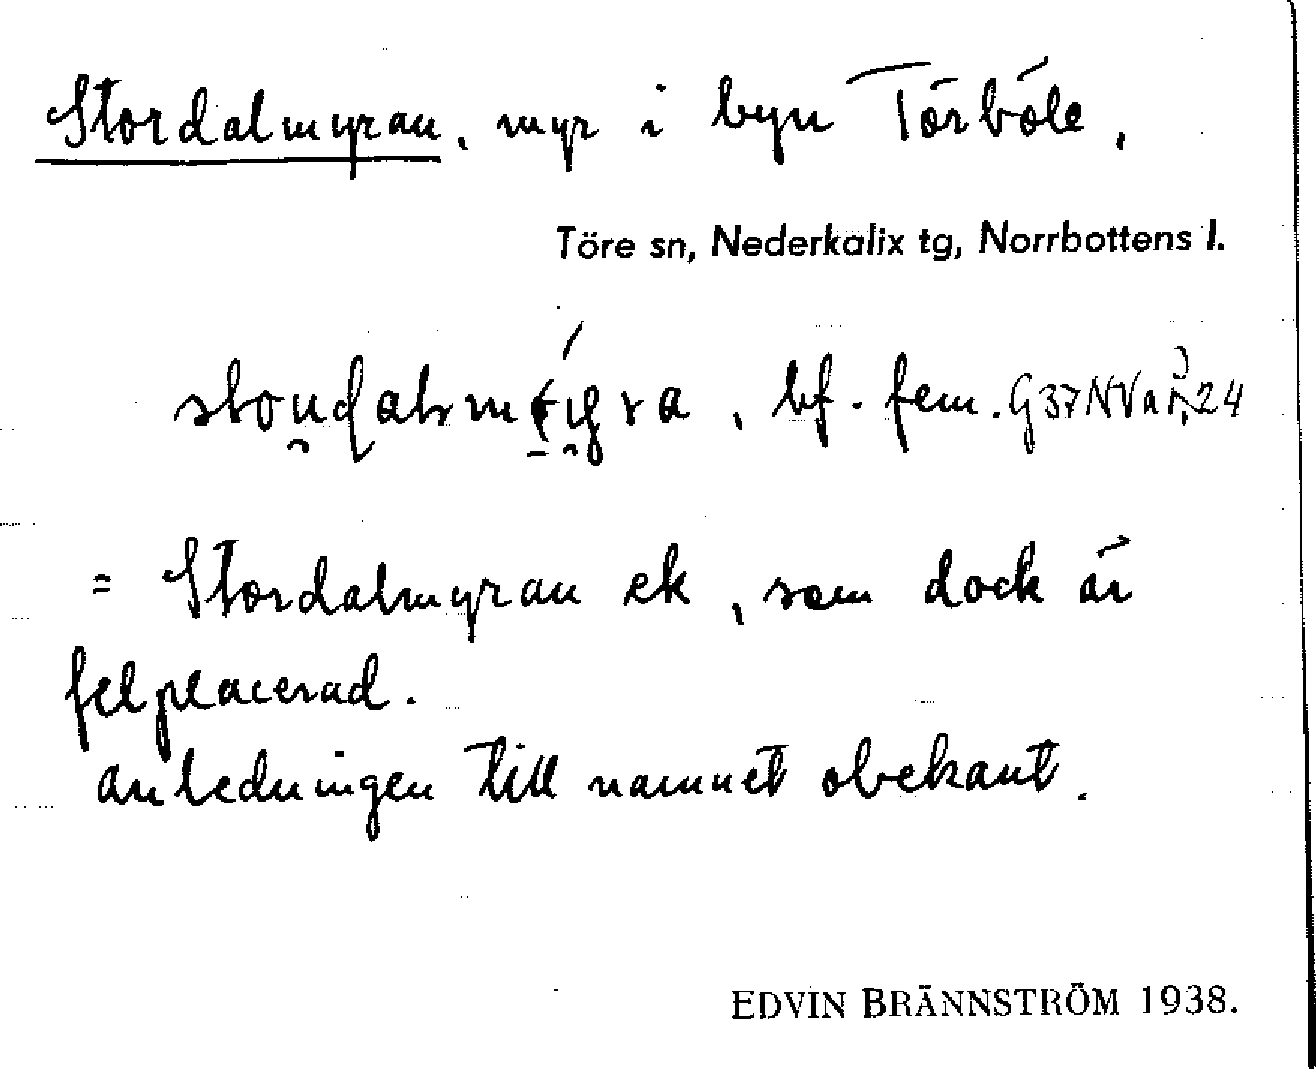 Stordalmyran, myr i byn Törböle,
Töre sn, Nederkalix tg, Norrbottens l.
bf. fem.
= Stordalmyran ek, som dock är
felplacerad.
Anledningen till namnet obekant.
EDVIN BRÄNNSTRÖM 1938.